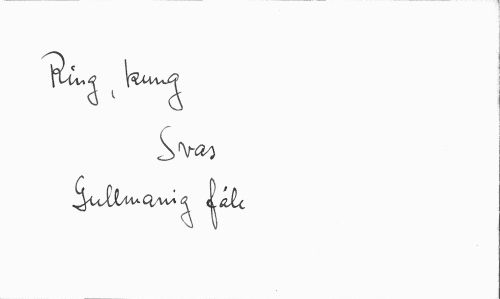 Ring, kung
Svas
Gullmanig fåle